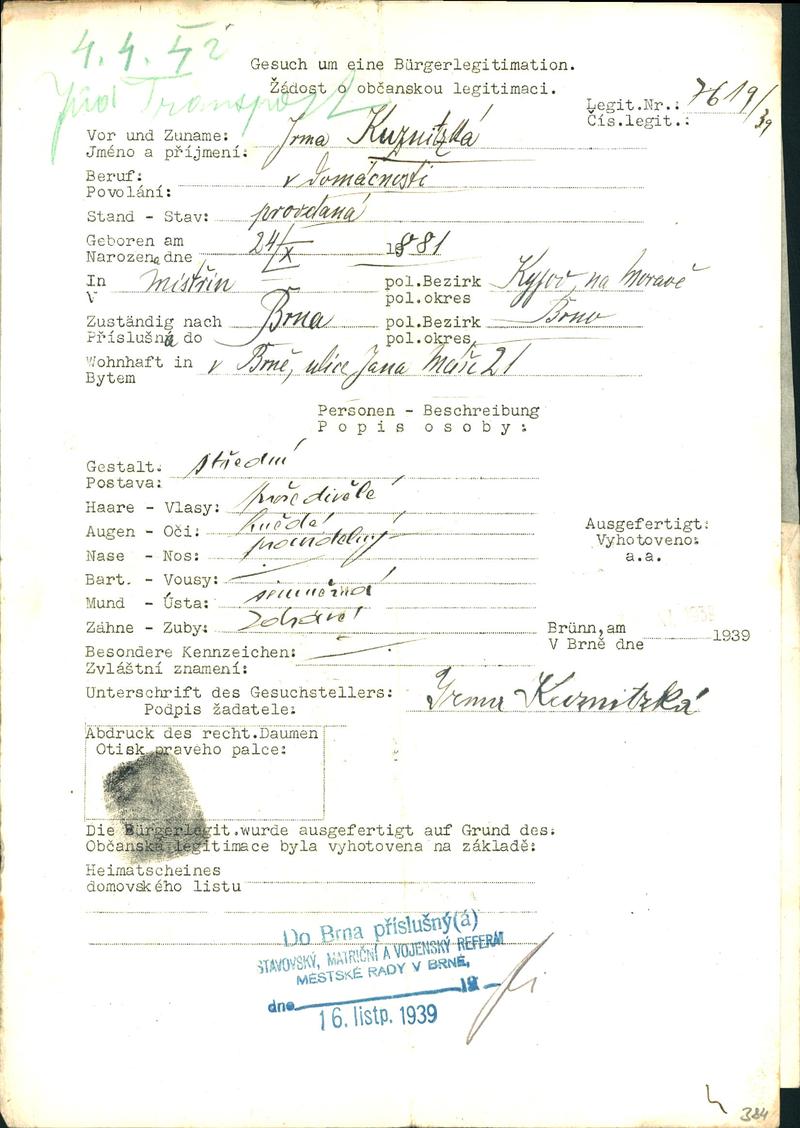 4.4.42
Jüd Transport
Gesuch um eine Bürgerlegitimation.
Žádost o občanskou legitimaci.
Legit.Nr.: 7619/39
Čís.legit.:
Vor und Zuname: Irma Kuznitzká
Jméno a příjmení:
Beruf: v domácnosti
Povolání:
Stand - Stav: provdaná
Geboren am 24/X 1881
Narozena dne
In Mistřín pol.Bezirk Kyjov na Moravě
V pol.okres
Zuständig nach Brna pol.Bezirk Brno
Příslušná do pol.okres
Wohnhaft in v Brně, ulice Jana Máše 21
Bytem
Personen - Beschreibung
Popis osoby:
Gestalt: střední
Postava:
Haare - Vlasy: prošedivělé
Augen - Oči: hnědé
Nase - Nos: pravidelný
Bart. - Vousy: -
Mund - Ústa: souměrná
Zähne - Zuby: zdravé
Ausgefertigt:
Vyhotoveno:
a.a.
Brünn,am 1939
V Brně dne
Besondere Kennzeichen: -
Zvláštní znamení:
Unterschrift des Gesuchstellers: Irma Kuznitzká
Podpis žadatele:
Abdruck des recht.Daumen
Otisk pravého palce:
Die Bürgerlegit.wurde ausgefertigt auf Grund des:
Občanská legitimace byla vyhotovena na základě:
Heimatscheines
domovského listu
Do Brna příslušný(á)
STAVOVSKÝ, MATRIČNÍ A VOJENSKÝ REFERÁT
MĚSTSKÉ RADY V BRNĚ,
dne 19
16. listp. 1939
384